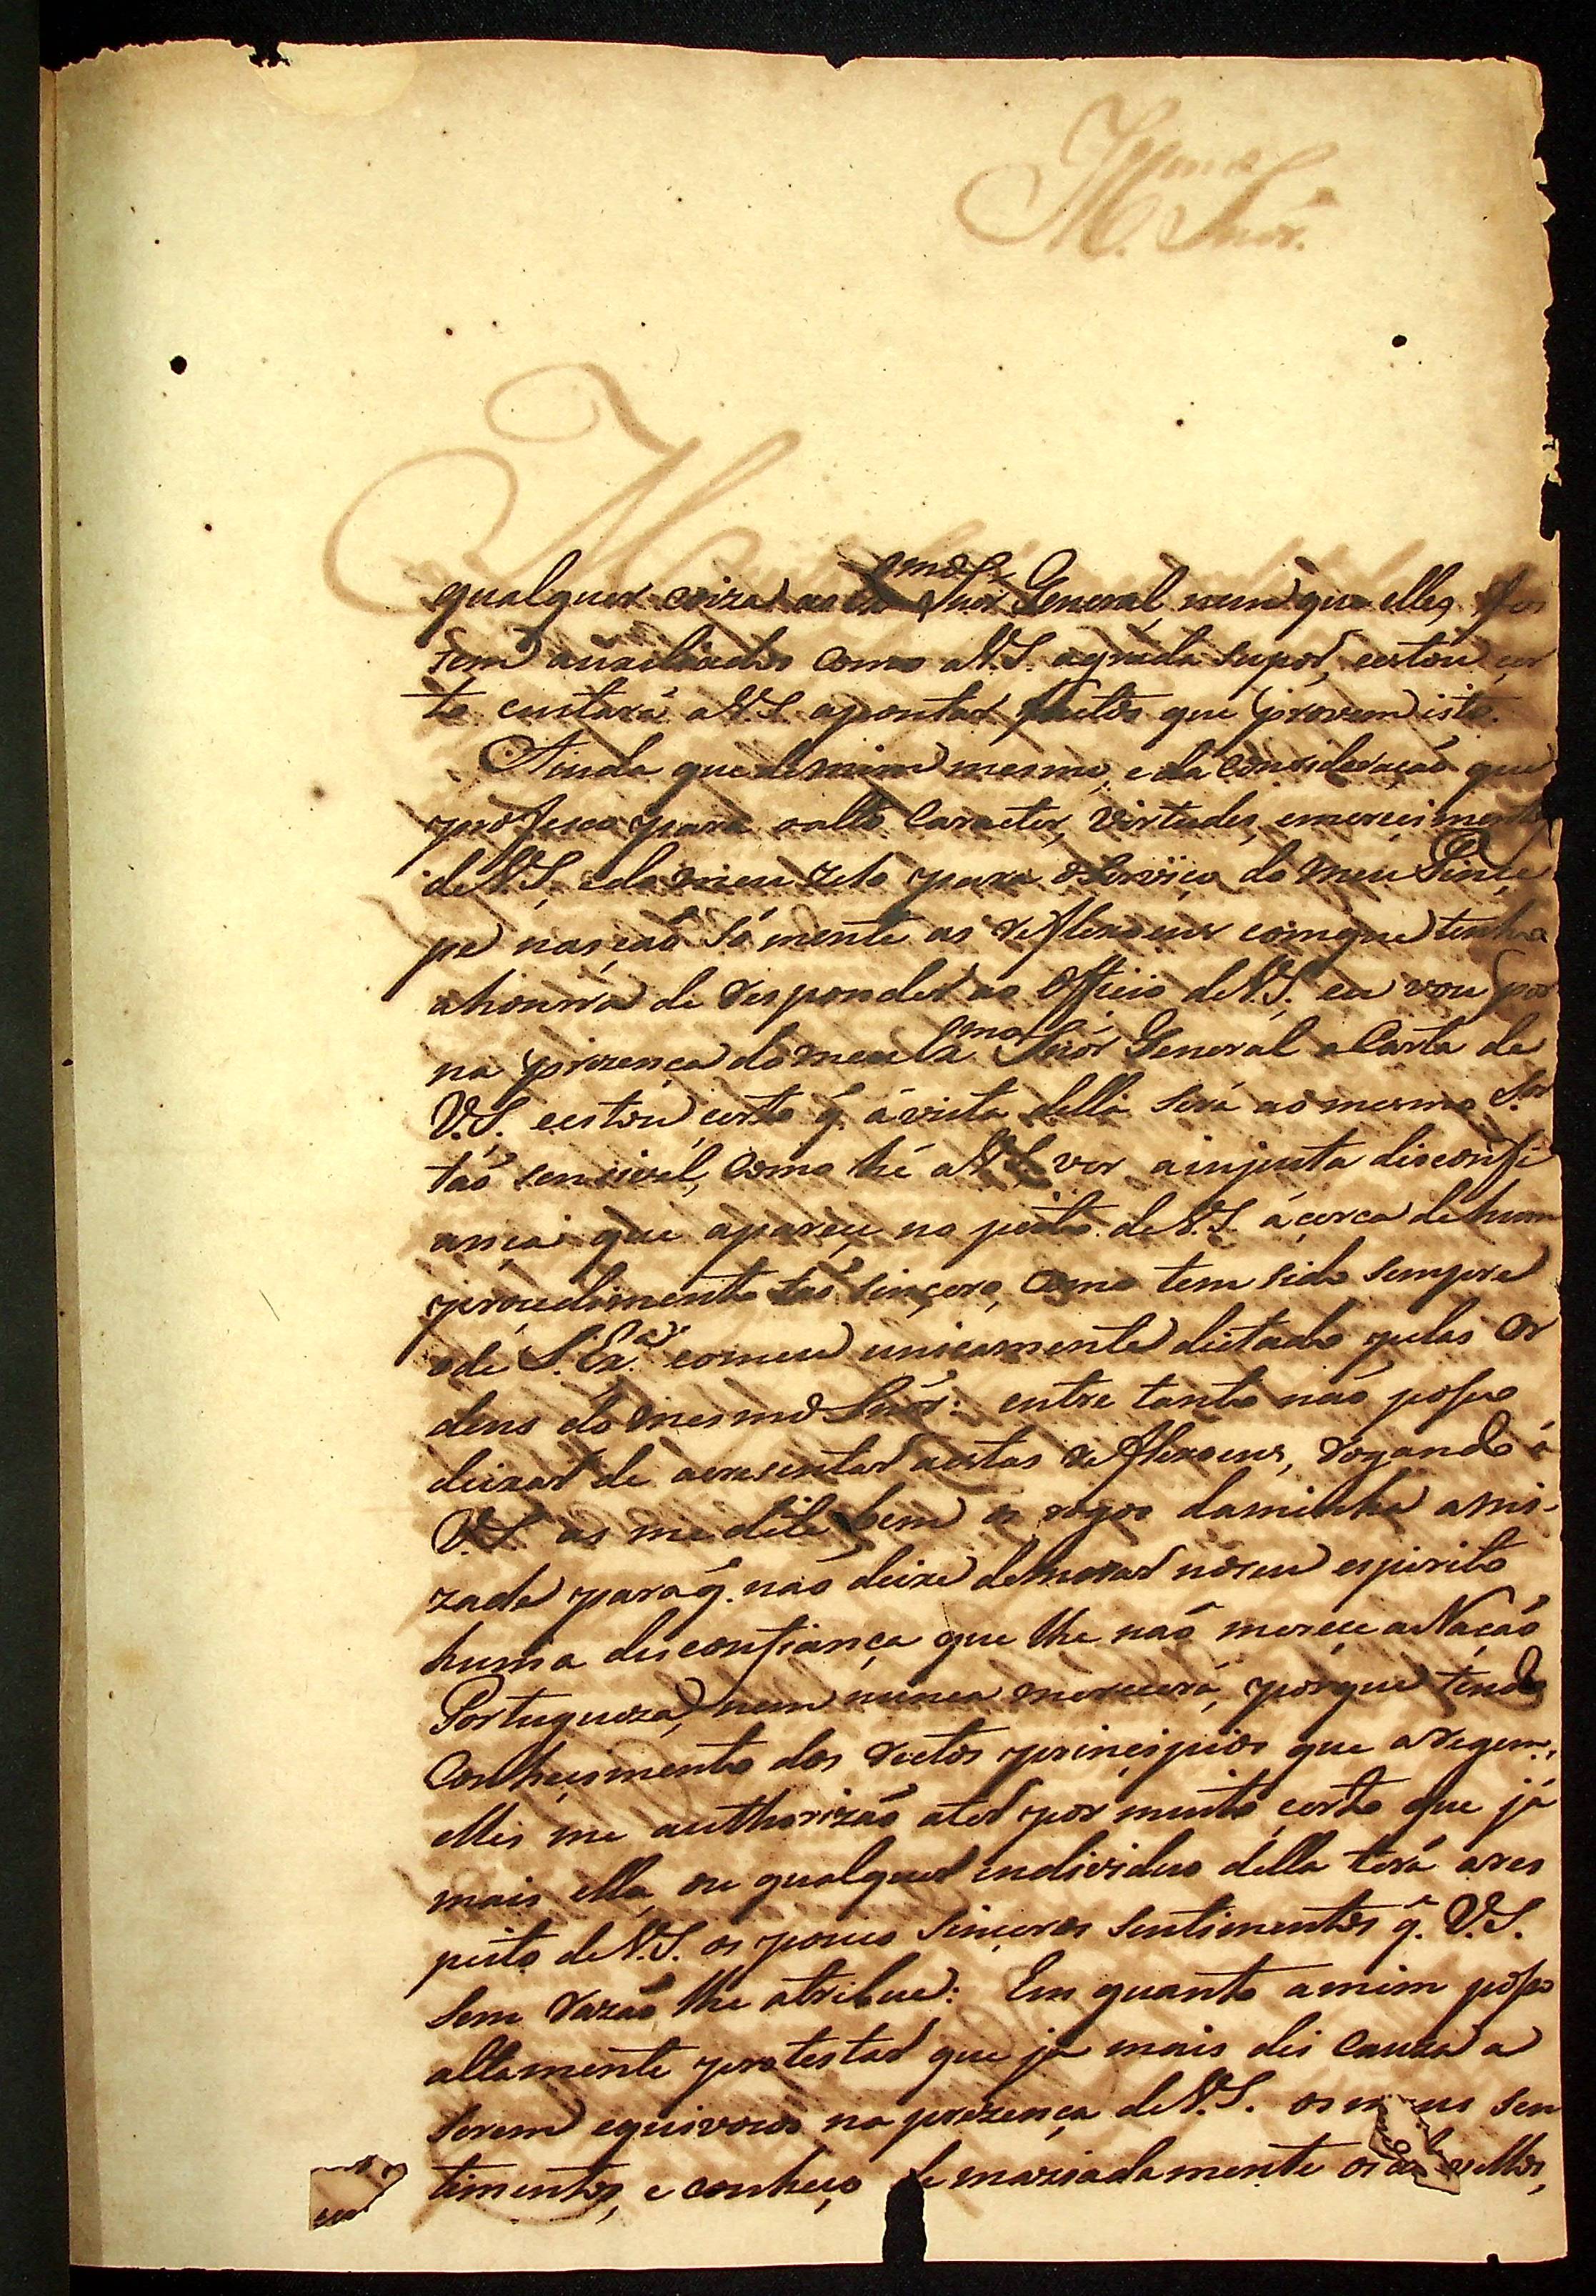 Illmo
M. Snór.
qualquer coiza ao Exmo Snór General, nem que elles fos
sem auxiliados como a V.S. agrada supor, estou cer
to custará a V.S. apontar factos que provem isto.
Ainda que de mim mesmo, e da consideração que
professo para o alto Caracter, Virtudes, e merecimento
de V.S., e do meu zelo para o Serviço do meu Princi
pe nasção sómente as reflexoens com que tenho
a honrra de responder ao Officio de V.S., eu vou por
na prezença do meu Exmo Snór General a Carta de
V.S., e estou certo q. á vista della será ao mesmo Sr
tão sencivel, como hé a V.S. ver a injusta disconfi
ança que apareçe no peito de V.S. áçerca de hum
procedimento tão sinçero, como tem sido sempre
o de S. Exa. e o meu unicamente dictado pelas Or
dens do mesmo Snór: entre tanto não posso
deixar de acresentar a estas reflexoens, rogando á
V.S. as medite bem os rogos da minha ami-
zade para q. não deixe demorar no seu espirito
huma desconfiança que lhe não mereçe a Nação
Portugueza, nem nunca mereçerá, porque tendo
Conheçimento dos rectos prinçipios que a regem,
elles me authorizão a ter por muito çerto que já
mais ella, ou qualquer individuo della terá a res
peito de V.S. os pouco sinçeros sentimentos q. V.S.
sem razão lhe atribue: Em quanto a mim posso
altamente protestar que já mais dei cauza a
serem equivocos na prezença de V.S. os meus sen
timentos, e conheço demaziadamente os